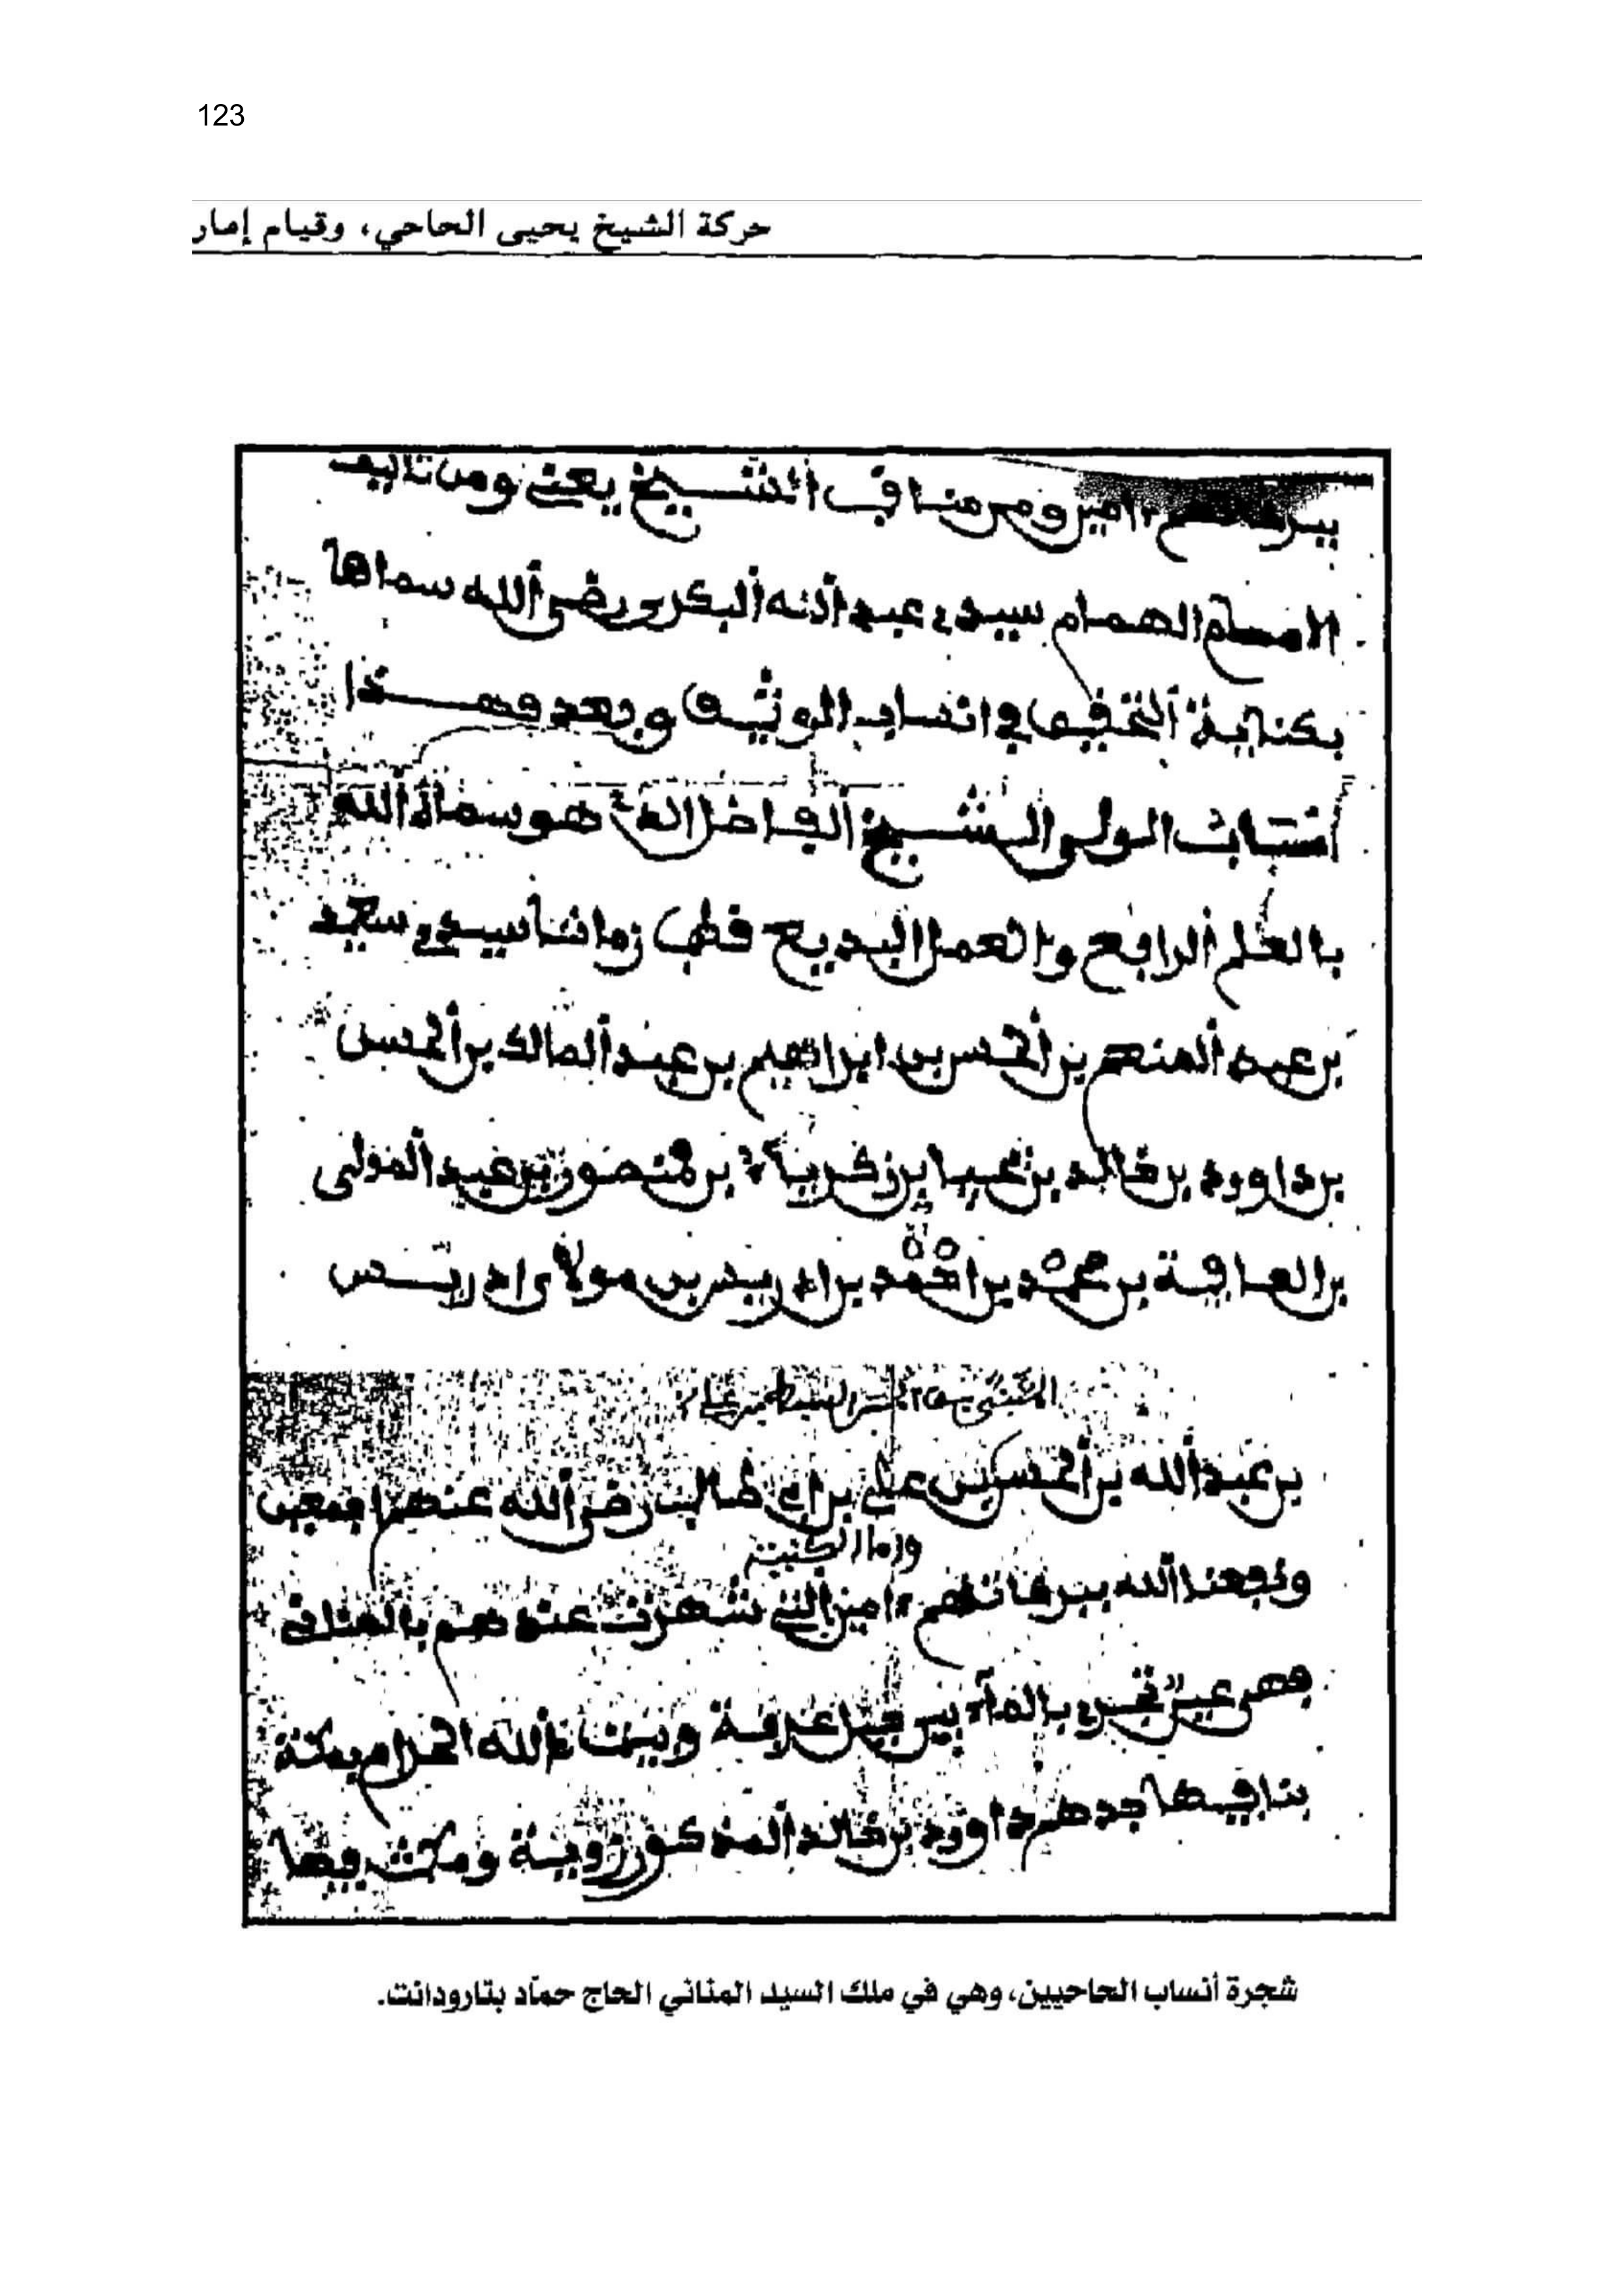 123
حركة الشيخ يحيى الحاحي، وقيام إمار
امين ومن مناقب الشيخ يحيى ومن تاليف
الامام الهمام سيدي عبد الله البكري رضي الله سماها
بكتابة التحقيق في انساب الوثيق وبعد فهذا
انتساب الولي الشيخ الفاضل الذي هو سماه الله
بالعلم الرافع والعمل البديع قطب زماننا سيدي سعيد
بن عبد المنعم بن الحسن بن ابراهيم بن عبد المالك بن الحسن
بن داوود بن خالد بن يحييا بن زكرياء بن منصور بن عبيد المولى
بن العافية بن محمد بن احمد بن ادريس بن مولاي ادريس
بن عبد الله بن الحسن بن علي بن ابي طالب رضي الله عنهم اجمعين
واما الكنية
ونفعنا الله ببركاتهم ءامين التي شهرت عند هم بالمناني
فهي عين تجري بالماء بين جبل عرفة وبيت الله الحرام بمكة
بنا فيها جدهم داوود بن خالد المذكور زوية ومكث فيها
شجرة أنساب الحاحيين، وهي في ملك السيد المناني الحاج حمّاد بتارودانت.